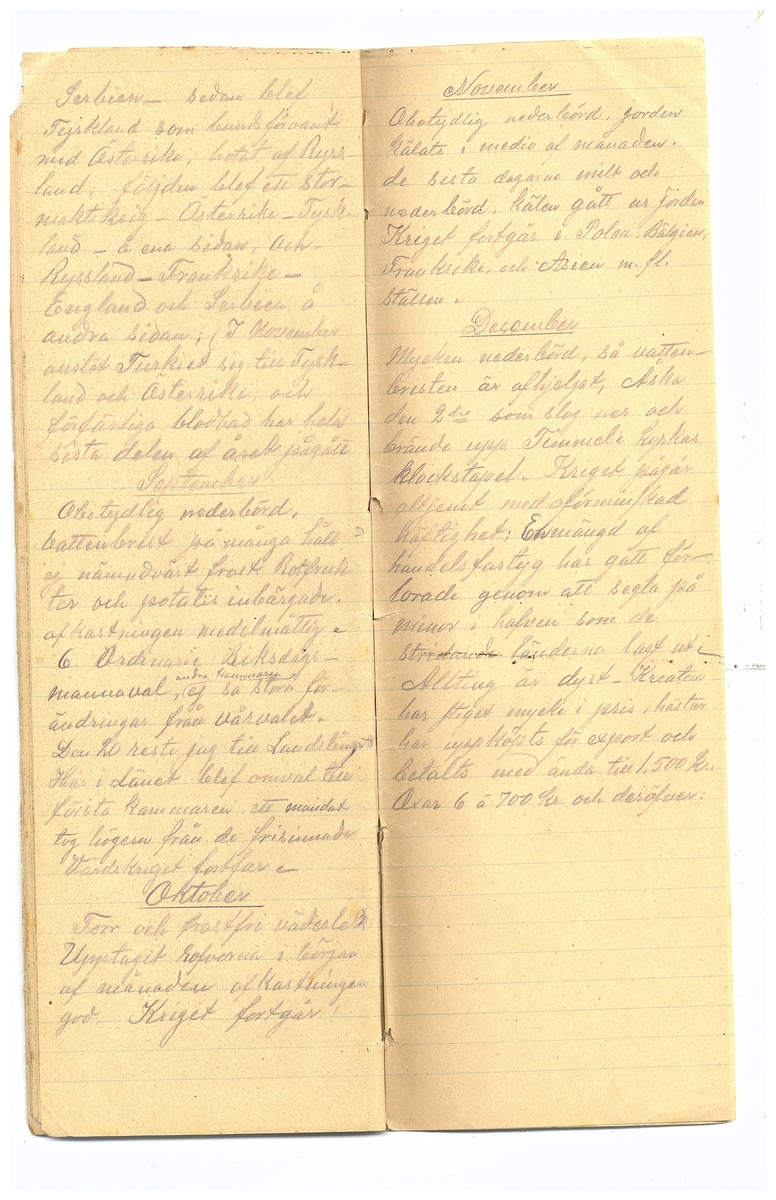 Serbien – sedan blef
Tyskland som bundsförvant
med Österrike, hotat af Ryss-
land, följden blef ett stor-
makt krig – Österrike – Tysk-
land – å ena sidan, och
Ryssland – Frankrike –
England och Serbien å
andra sidan; (I November
anslöt Turkiet sig till Tysk-
land och Österrike, och
förfärliga blodbad har hela
sista delen af året pågått
September
Obetydlig nederbörd.
Vattenbrist på många håll
ej nämndvärt frost Rotfruk-
ter och potatis inbärgade.
afkastningen medelmåttig.
6 Ordinarie Riksdags-
andra kammaren
mannaval, ej så stora för-
ändringar från vårvalet.
Den 20 reste jag till Landstinget
Här i Länet blef omval till
första kammaren ett mandat
tog högern från de frisinnade
Världskriget fortfar.
Oktober
Torr och frostfri väderlek
Upptagit rofvorna i början
af månaden afkastningen
god. Kriget fortgår!
November
Obetydlig nederbörd. jorden
kälats i medio af månaden.
de sista dagarna milt och
nederbörd, kälen gått ur jorden
Kriget fortgår i Polen, Bälgien,
Frankrike, och Asien m. fl.
ställen.
December
Mycken nederbörd, så vatten-
bristen är afhjelpt, Åska
den 2dre som slog ner och
brände upp Timmele kyrkas
klockstapel. Kriget pågår
alltjemt med oförminskad
häftighet; En mängd af
handelsfartyg har gått för-
lorade genom att segla på
minor i hafven som de
stridande länderna lagt ut –
Allting är dyrt – Kreaturen
har stiget mycke i pris, hästar
har uppköpts för export och
betalts med ända till 1.500 Kr.
Oxar 6 à 700 Kr och deröfver: